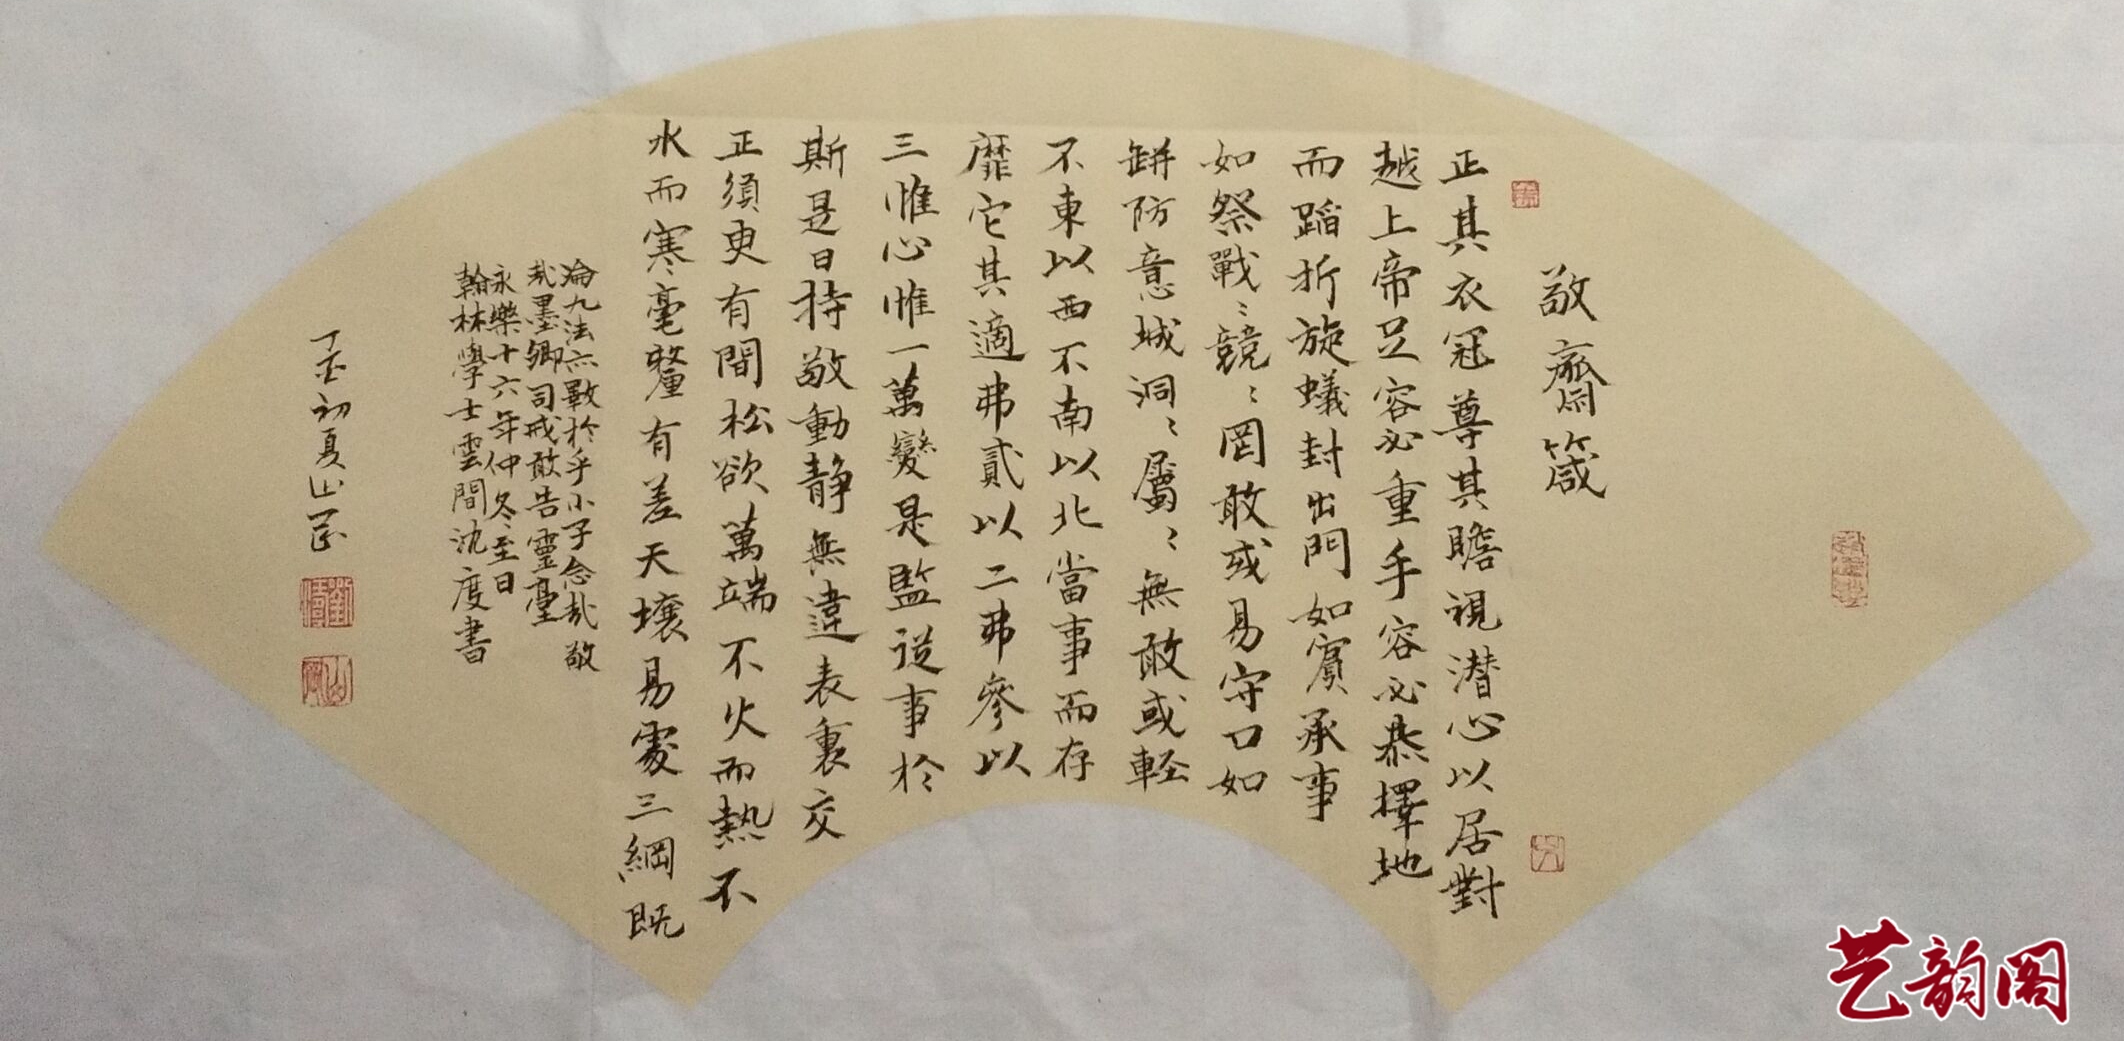 敬齋箴
正其衣冠尊其瞻視潛心以居對
越上帝足容必重手容必恭擇地
而蹈折旋蟻封出門如賓承事
如祭戰〻兢〻罔敢或易守口如
缾防意城洞〻屬〻無敢或輕
不東以西不南以北當事而存
靡它其適弗貳以二弗參以
三惟心惟一萬變是監從事於
斯是曰持敬動静無違表裏交
正須臾有間松欲萬端不火而熱不
水而寒毫釐有差天壤易處三綱既
淪九法亦斁於乎小子念哉敬
哉墨卿司戒敢告靈臺
永樂十六年仲冬至日
翰林學士雲間沈度書
初夏山
艺韵阁